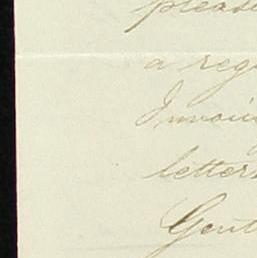 please
a reg
Invoi
letters
Gent